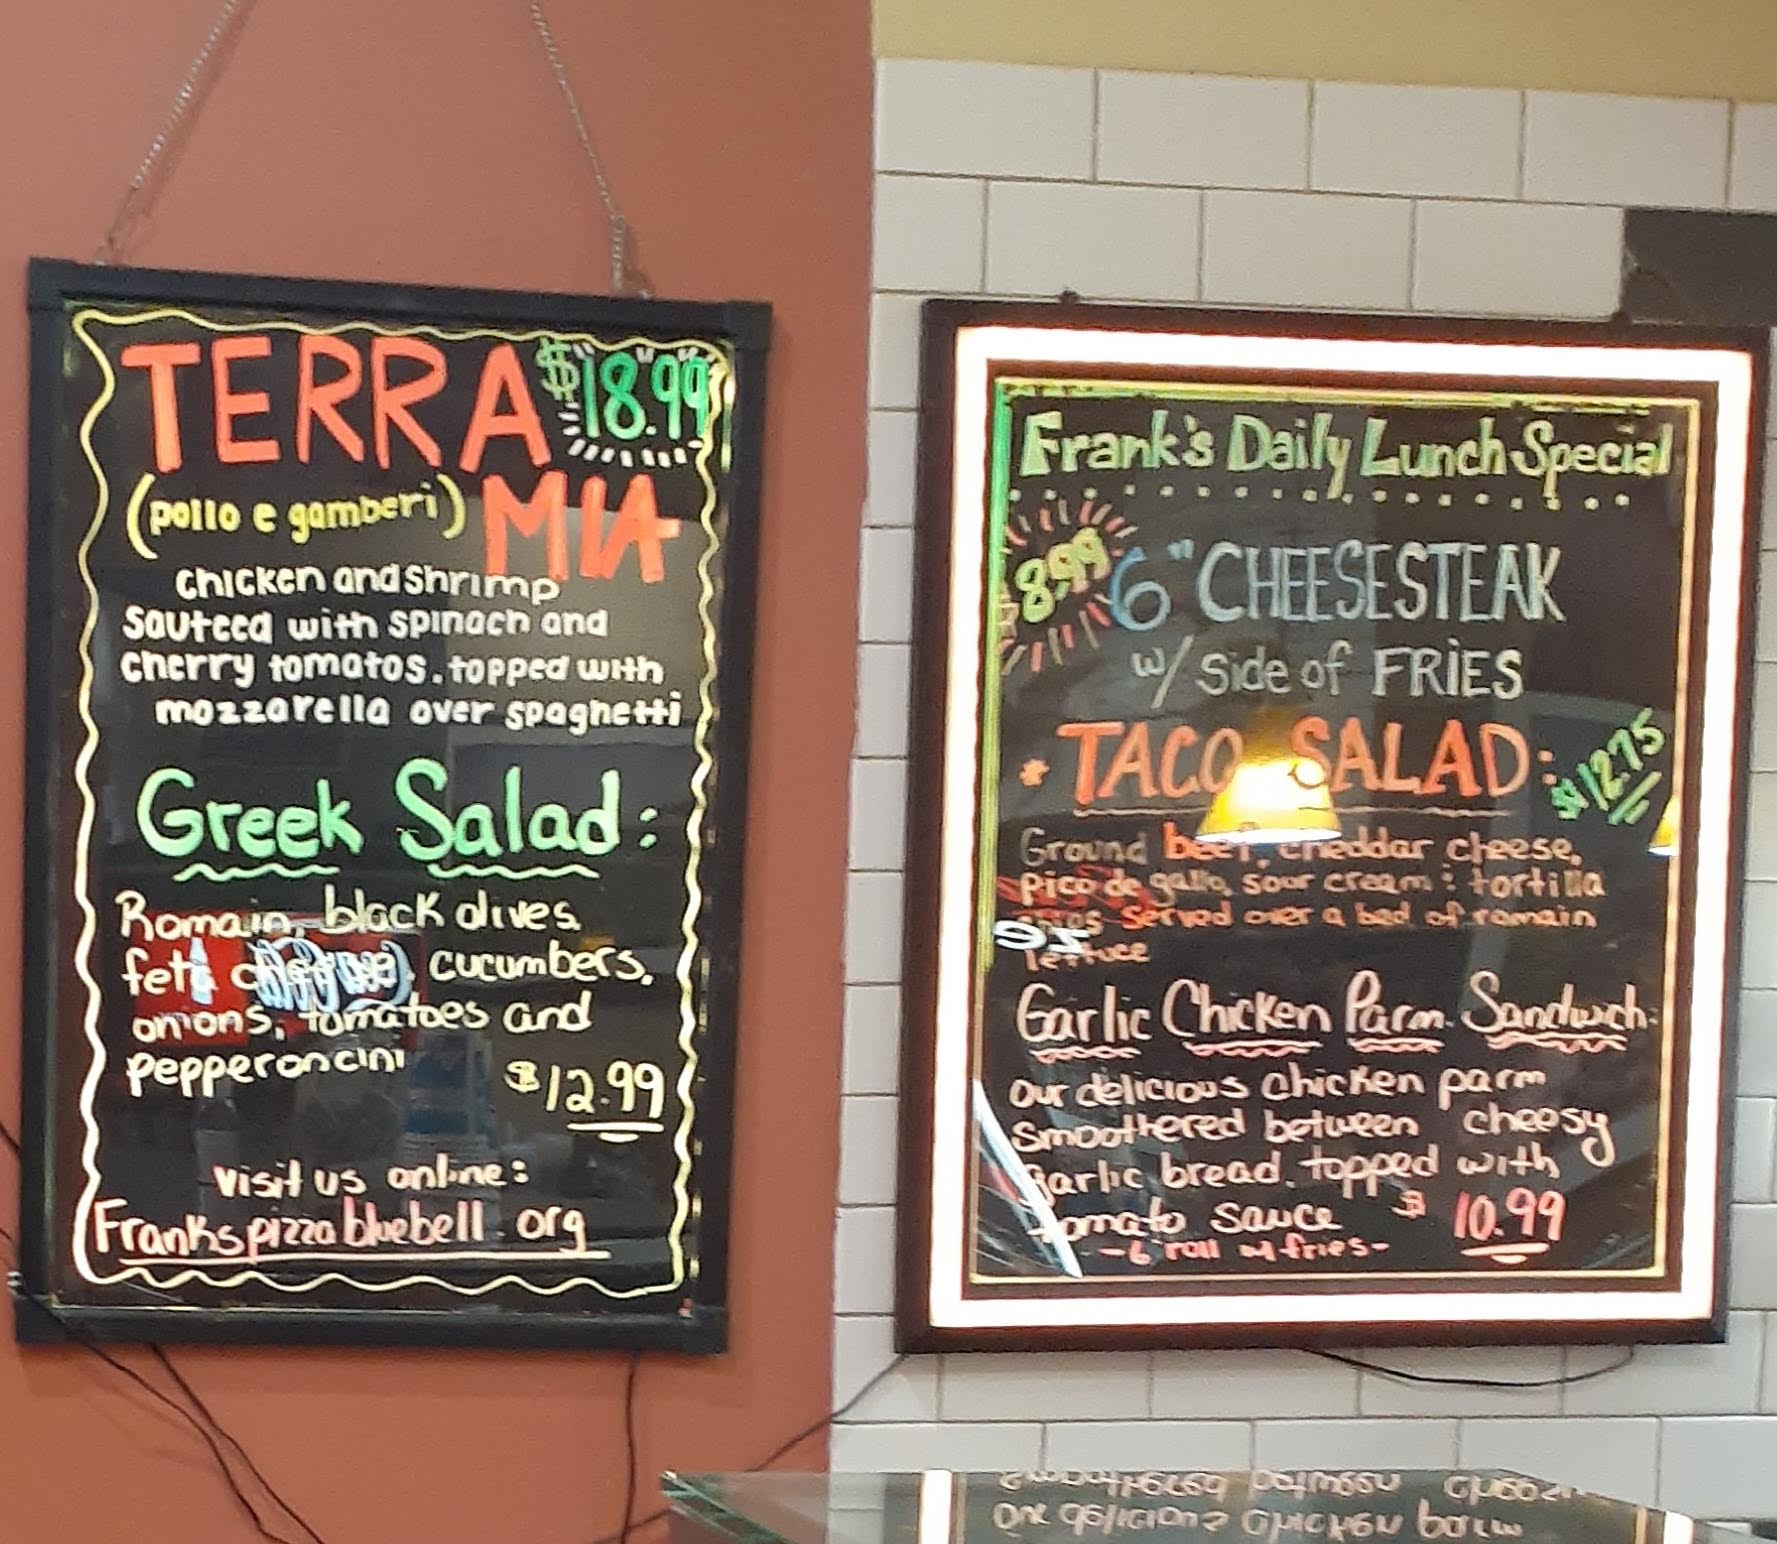 TERRA $18.99
(pollo e gamberi) MIA
chicken and shrimp
Sauteed with spinach and
cherry tomatos. topped with
mozzarella over spaghetti
Greek Salad:
Romain, black olives
feta cheese, cucumbers,
onions, tomatoes and
pepperoncini
$12.99
visit us online:
Frankspizzabluebell.org
Frank's Daily Lunch Special
$8.99 6" CHEESESTEAK
w/ side of FRIES
* TACO SALAD: $12.75
Ground beef, cheddar cheese,
pico de gallo, sour cream : tortilla
served over a bed of romain
lettuce
Garlic Chicken Parm Sandwich:
our delicious chicken parm
smoothered between cheesy
garlic bread. topped with
tomato sauce $10.99
-6" roll w/ fries-